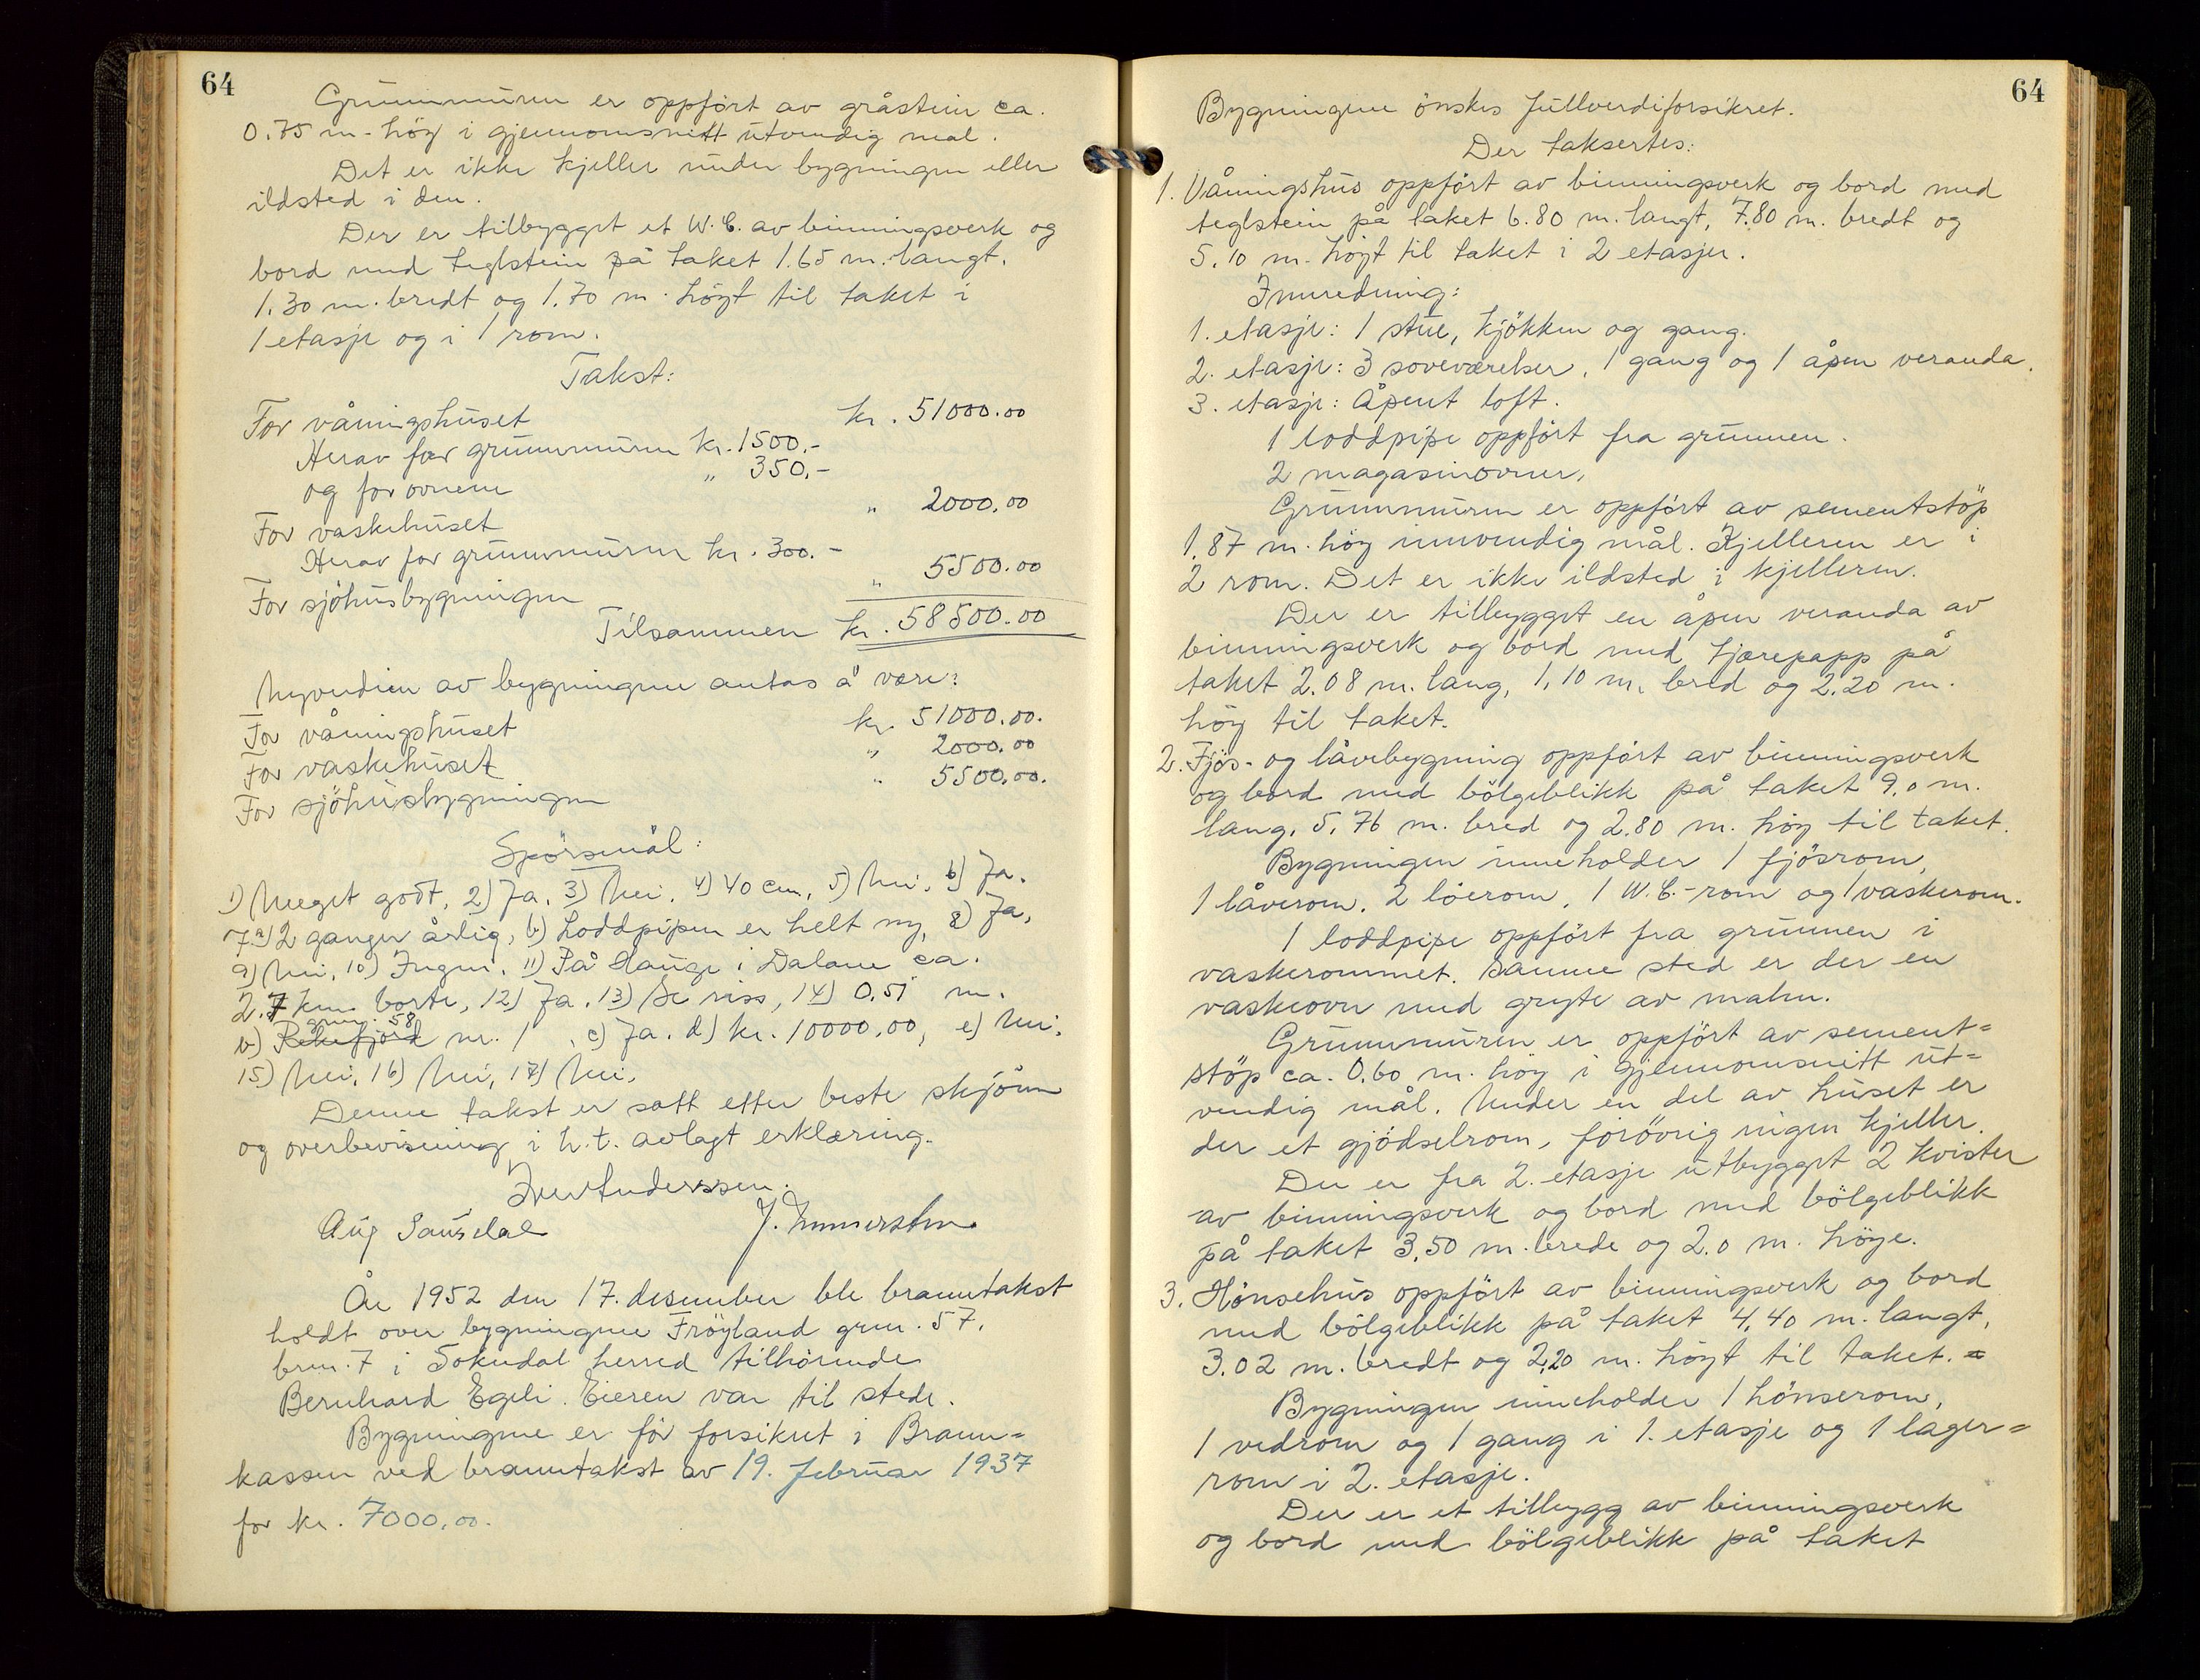 64
Grunnmuren er oppfört av gråstein ca.
0.75 m. höy i gjennomsnitt utvendig mal.
Det er ikke kjeller under bygningen eller
ildsted i den.
Der er tilbygget et W.C. av binningsverk og
bord med teglstein på taket 1.65 m. langt,
1.30 m. bredt og 1.70 m. höyt til taket i
1 etasje og i 1 rom.
Takst:
For våningshuset kr. 51000.00
Herav for grunnmuren kr. 1500.-
og for ovnene " 350.-
For vaskehuset " 2000.00
Herav for grunnmuren kr. 300.-
For sjöhusbygningen " 5500.00
Tilsammen kr. 58500.00
Nyverdien av bygningene antas å være:
For våningshuset kr. 51000.00.
For vaskehuset " 2000.00
For sjöhusbygningen " 5500.00.
Spörsmål:
1) Meget godt, 2) Ja, 3) Nei, 4) 40 cm, 5) Nei, 6) Ja.
7 a) 2 ganger årlig, b) Loddpipen er helt ny, 8) Ja,
9) Nei, 10) Ingen, 11) På Hauge i Dalane ca.
2.7 km. borte, 12) Ja, 13) Se riss, 14) 0.51 m.
b) Rekefjord gnr. 58 nr. 1, c) Ja. d) kr. 10000.00, e) Nei.
15) Nei, 16) Nei, 17) Nei.
Denne takst er satt etter beste skjönn
og overbevisning i h.t. avlagt erklæring.
Iver Anderssen.
Aug Sausdal J.
År 1952 den 17. desember ble branntakst
holdt over bygningene Fröyland gnr. 57,
brn. 7 i Sokndal herred tilhörende
Bernhard Egeli. Eieren var til stede.
Bygningene er för forsikret i Brann=
kassen ved branntakst av 19. februar 1937
for kr. 7000,00.
64
Bygningene önskes fullverdiforsikret.
Der taksertes:
1. Våningshus oppfört av binningsverk og bord med
teglstein på taket 6.80 m. langt, 7.80 m. bredt og
5.10 m. höyt til taket i 2 etasjer.
Innredning:
1. etasje: 1 stue, kjökken og gang.
2. etasje: 3 soveværelser, 1 gang og 1 åpen veranda.
3. etasje: Åpent loft.
1 loddpipe oppfört fra grunnen.
2 magasinovner.
Grunnmuren er oppfört av sementstöp
1.87 m. höy innvendig mål. Kjelleren er i
2 rom. Det er ikke ildsted i kjelleren.
Der er tilbygget en åpen veranda av
binningsverk og bord med tjærepapp på
taket 2.08 m. lang, 1,10 m. bred og 2.20 m.
höy til taket.
2. Fjös- og låvebygning oppfört av binningsverk
og bord med bölgeblikk på taket 9.0 m.
lang, 5.76 m. bred og 2.80 m. höy til taket.
Bygningen inneholder 1 fjösrom,
1 låverom, 2 löerom, 1 W.C.-rom og 1 vaskerom.
1 loddpipe oppfört fra grunnen i
vaskerommet. Samme sted er der en
vaskeovn med gryte av malm.
Grunnmuren er oppfört av sement=
stöp ca. 0.60 m. höy i gjennomsnitt ut=
vendig mål. Under en del av huset er
der et gjödselrom, forövrig ingen kjeller.
Der er fra 2. etasje utbygget 2 kvister
av binningsverk og bord med bölgeblikk
på taket 3.50 m. brede og 2.0 m. höye.
3. Hönsehus oppfört av binningsverk og bord
med bölgeblikk på taket 4.40 m. langt,
3.02 m. bredt og 2.20 m. höyt til taket.
Bygningen inneholder 1 hönserom,
1 vedrom og 1 gang i 1. etasje og 1 lager=
rom i 2. etasje.
Der er et tilbygg av binningsverk
og bord med bölgeblikk på taket